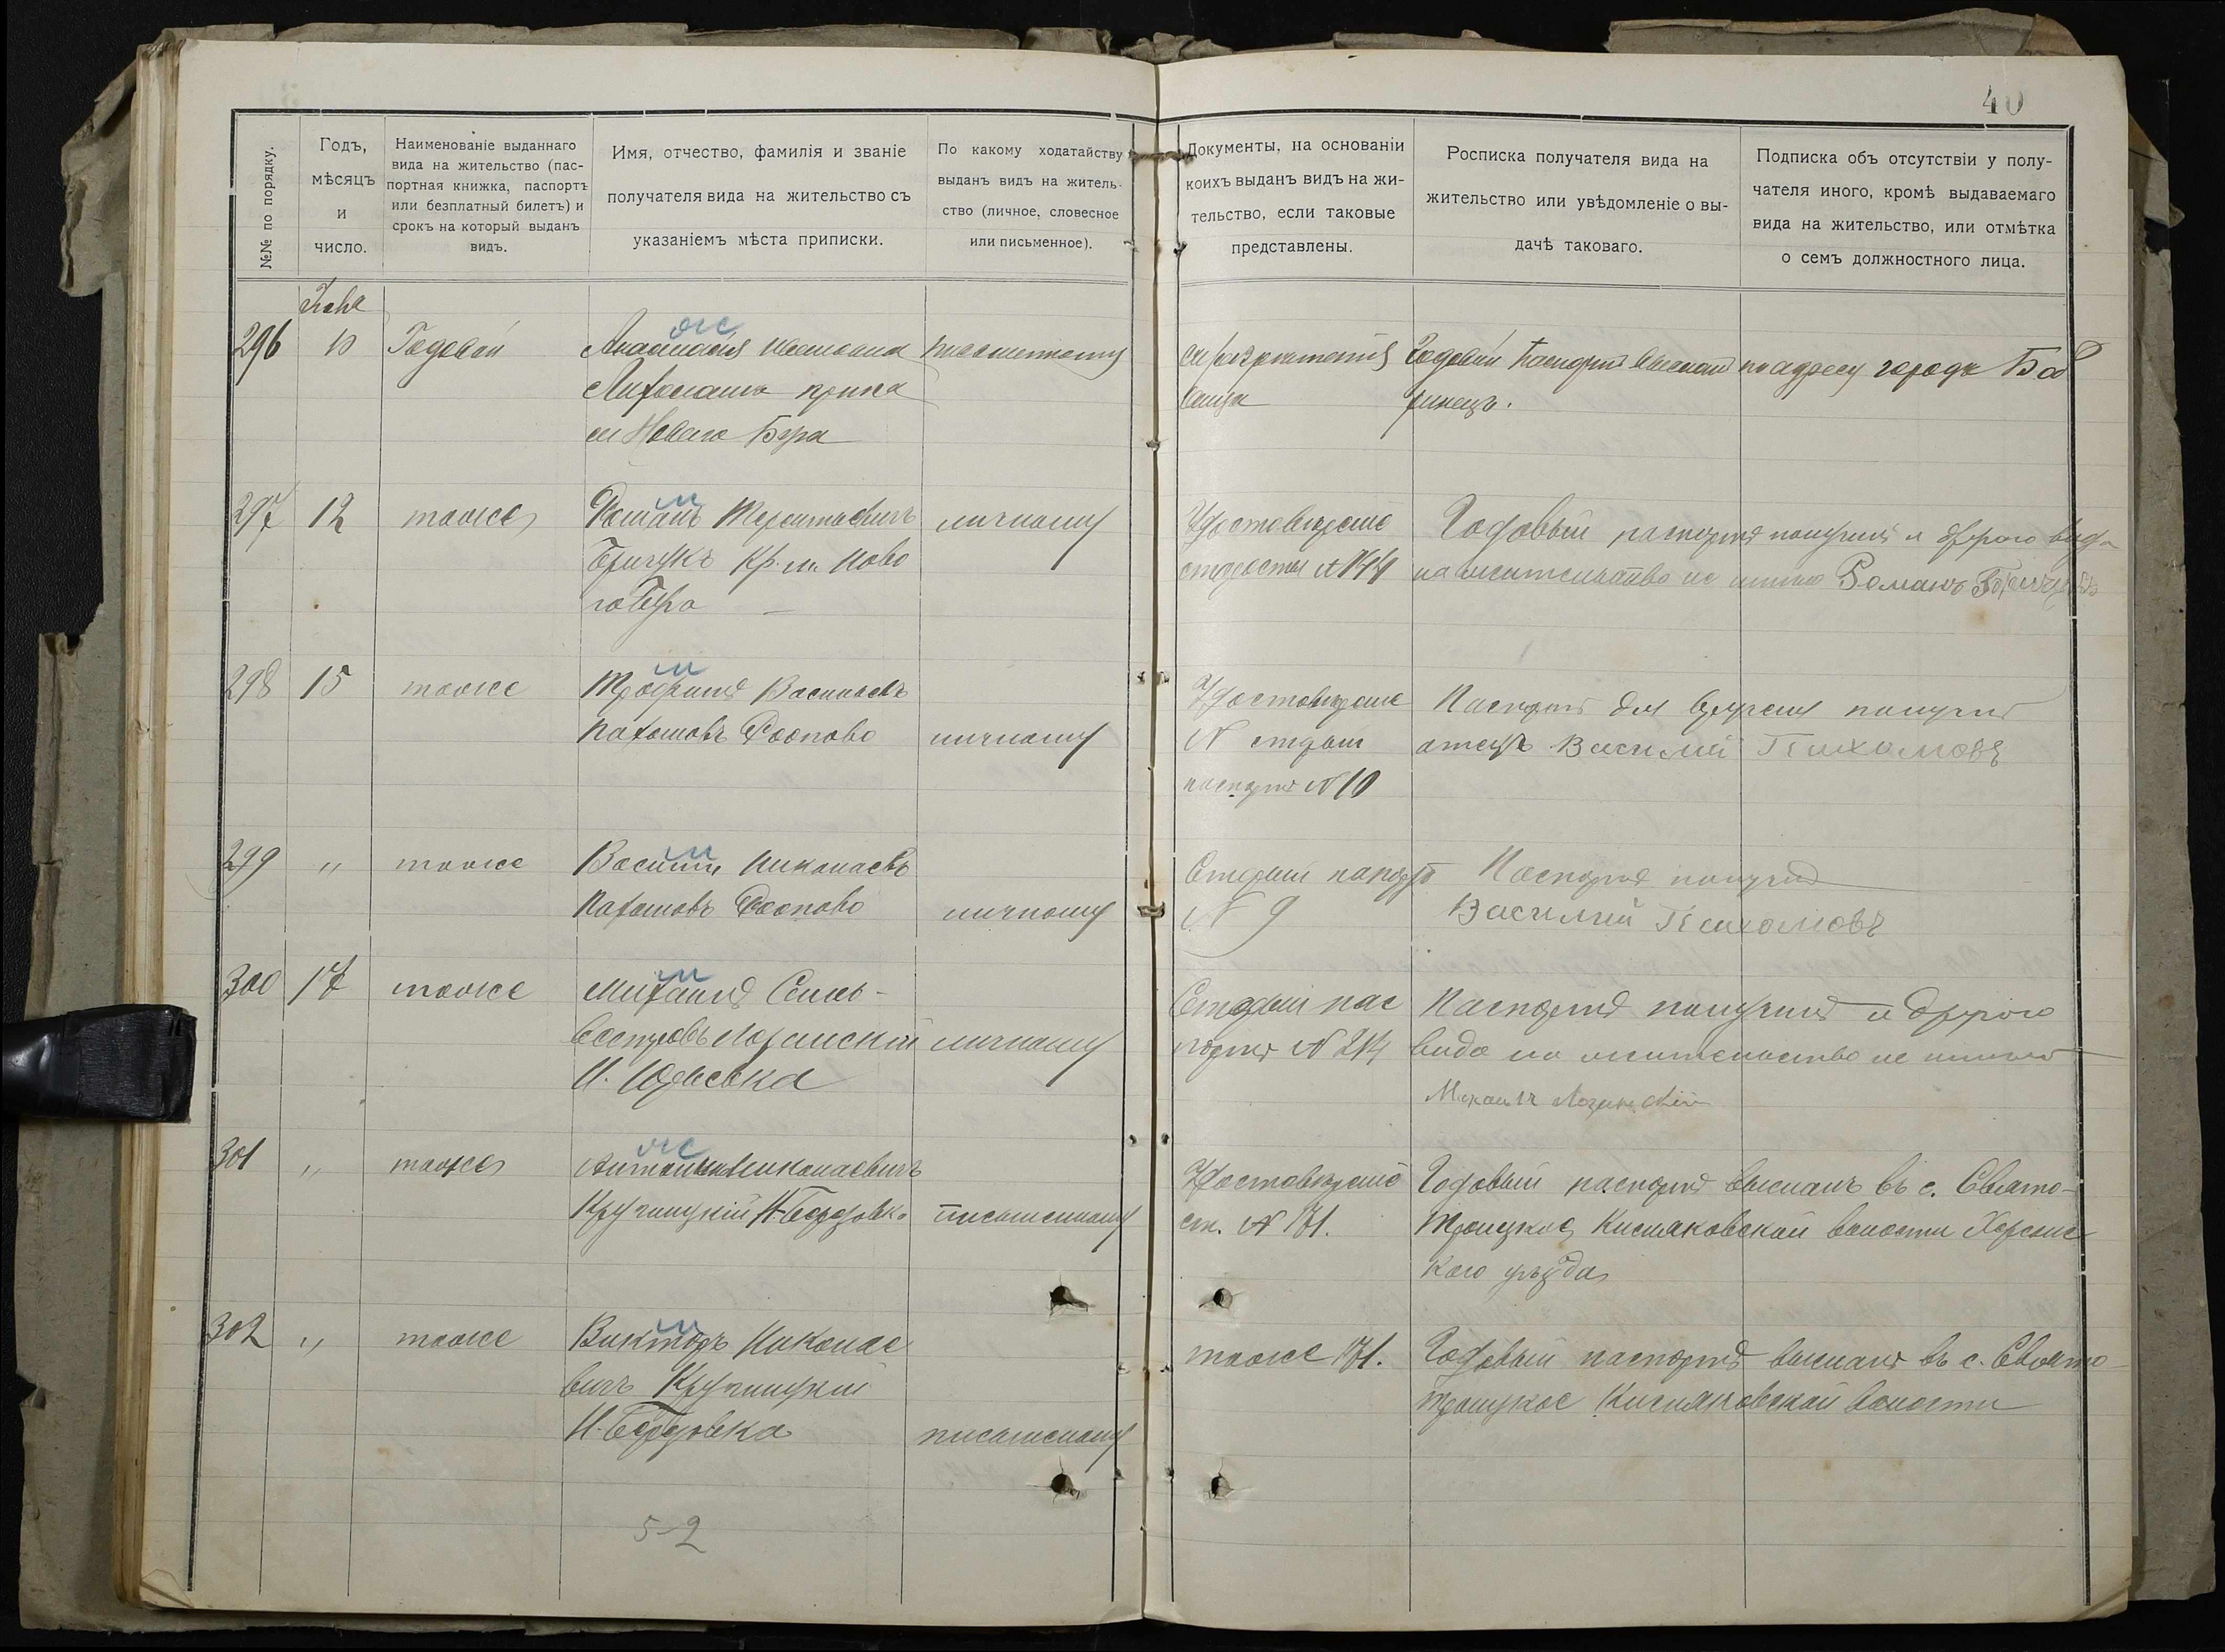 40
№№ по порядку.
Годъ,
мѣсяцъ
и
число.
Наименованіе выданнаго
вида на жительство (пас-
портная книжка, паспортъ
или безплатный билетъ) и
срокъ на который выданъ
видъ.
Имя, отчество, фамилія и званіе
получателя вида на жительство съ
указаніемъ мѣста приписки.
По какому ходатайству
выданъ видъ на житель-
ство (личное, словесное
или письменное).
Документы, на основаніи
коихъ выданъ видъ на жи-
тельство, если таковые
представлены.
Росписка получателя вида на
жительство или увѣдомленіе о вы-
дачѣ таковаго.
Подписка объ отсутствіи у полу-
чателя иного, кромѣ выдаваемаго
вида на жительство, или отмѣтка
о семъ должностного лица.
296
Годовой
ж
Ивановна
Новаго Буга
письменному
Годовой паспортъ высланъ по адресу города Боб
ринецъ.
297 12 тоже
м
Романъ Терентьевичъ
Бричукъ кр. м. Ново
го Буга
личному
Удостовѣреніе
старосты № 144
Годовый паспортъ получилъ и другого вида
на жительство не имѣю Романъ Бричукъ
298 15 тоже
м
Трофимъ Васильевъ
Пахомовъ
личному
Удостовѣреніе
№ старый
паспортъ № 10
Паспортъ для вручения получилъ
отецъ Василий Пахомовъ
299 " тоже
м
Василій Николаевъ
Пахомовъ
личному
Старый паспортъ
№ 9
Паспортъ получилъ
Василий Пахомовъ
300 17 тоже
м
Михаилъ Сильвестровъ Лозинскій
личному
Старый пас
портъ № 214
Паспортъ получилъ и другого
вида на жительство не имѣю
Михаилъ Лозинскій
301 " тоже
ж
Николаевичъ
Крупницкій
письменному
Удостовѣреніе
ст. № 171.
Годовый паспортъ высланъ въ с. Свято-
троицкое, Кисляковской волости Херсонс
кого уѣзда
302 " тоже
м
Викторъ Николае
вичъ Крупницкій
письменному
тоже 171.
Годовый паспортъ высланъ въ с. Свято-
троицкое Кисляковской волости
5-2